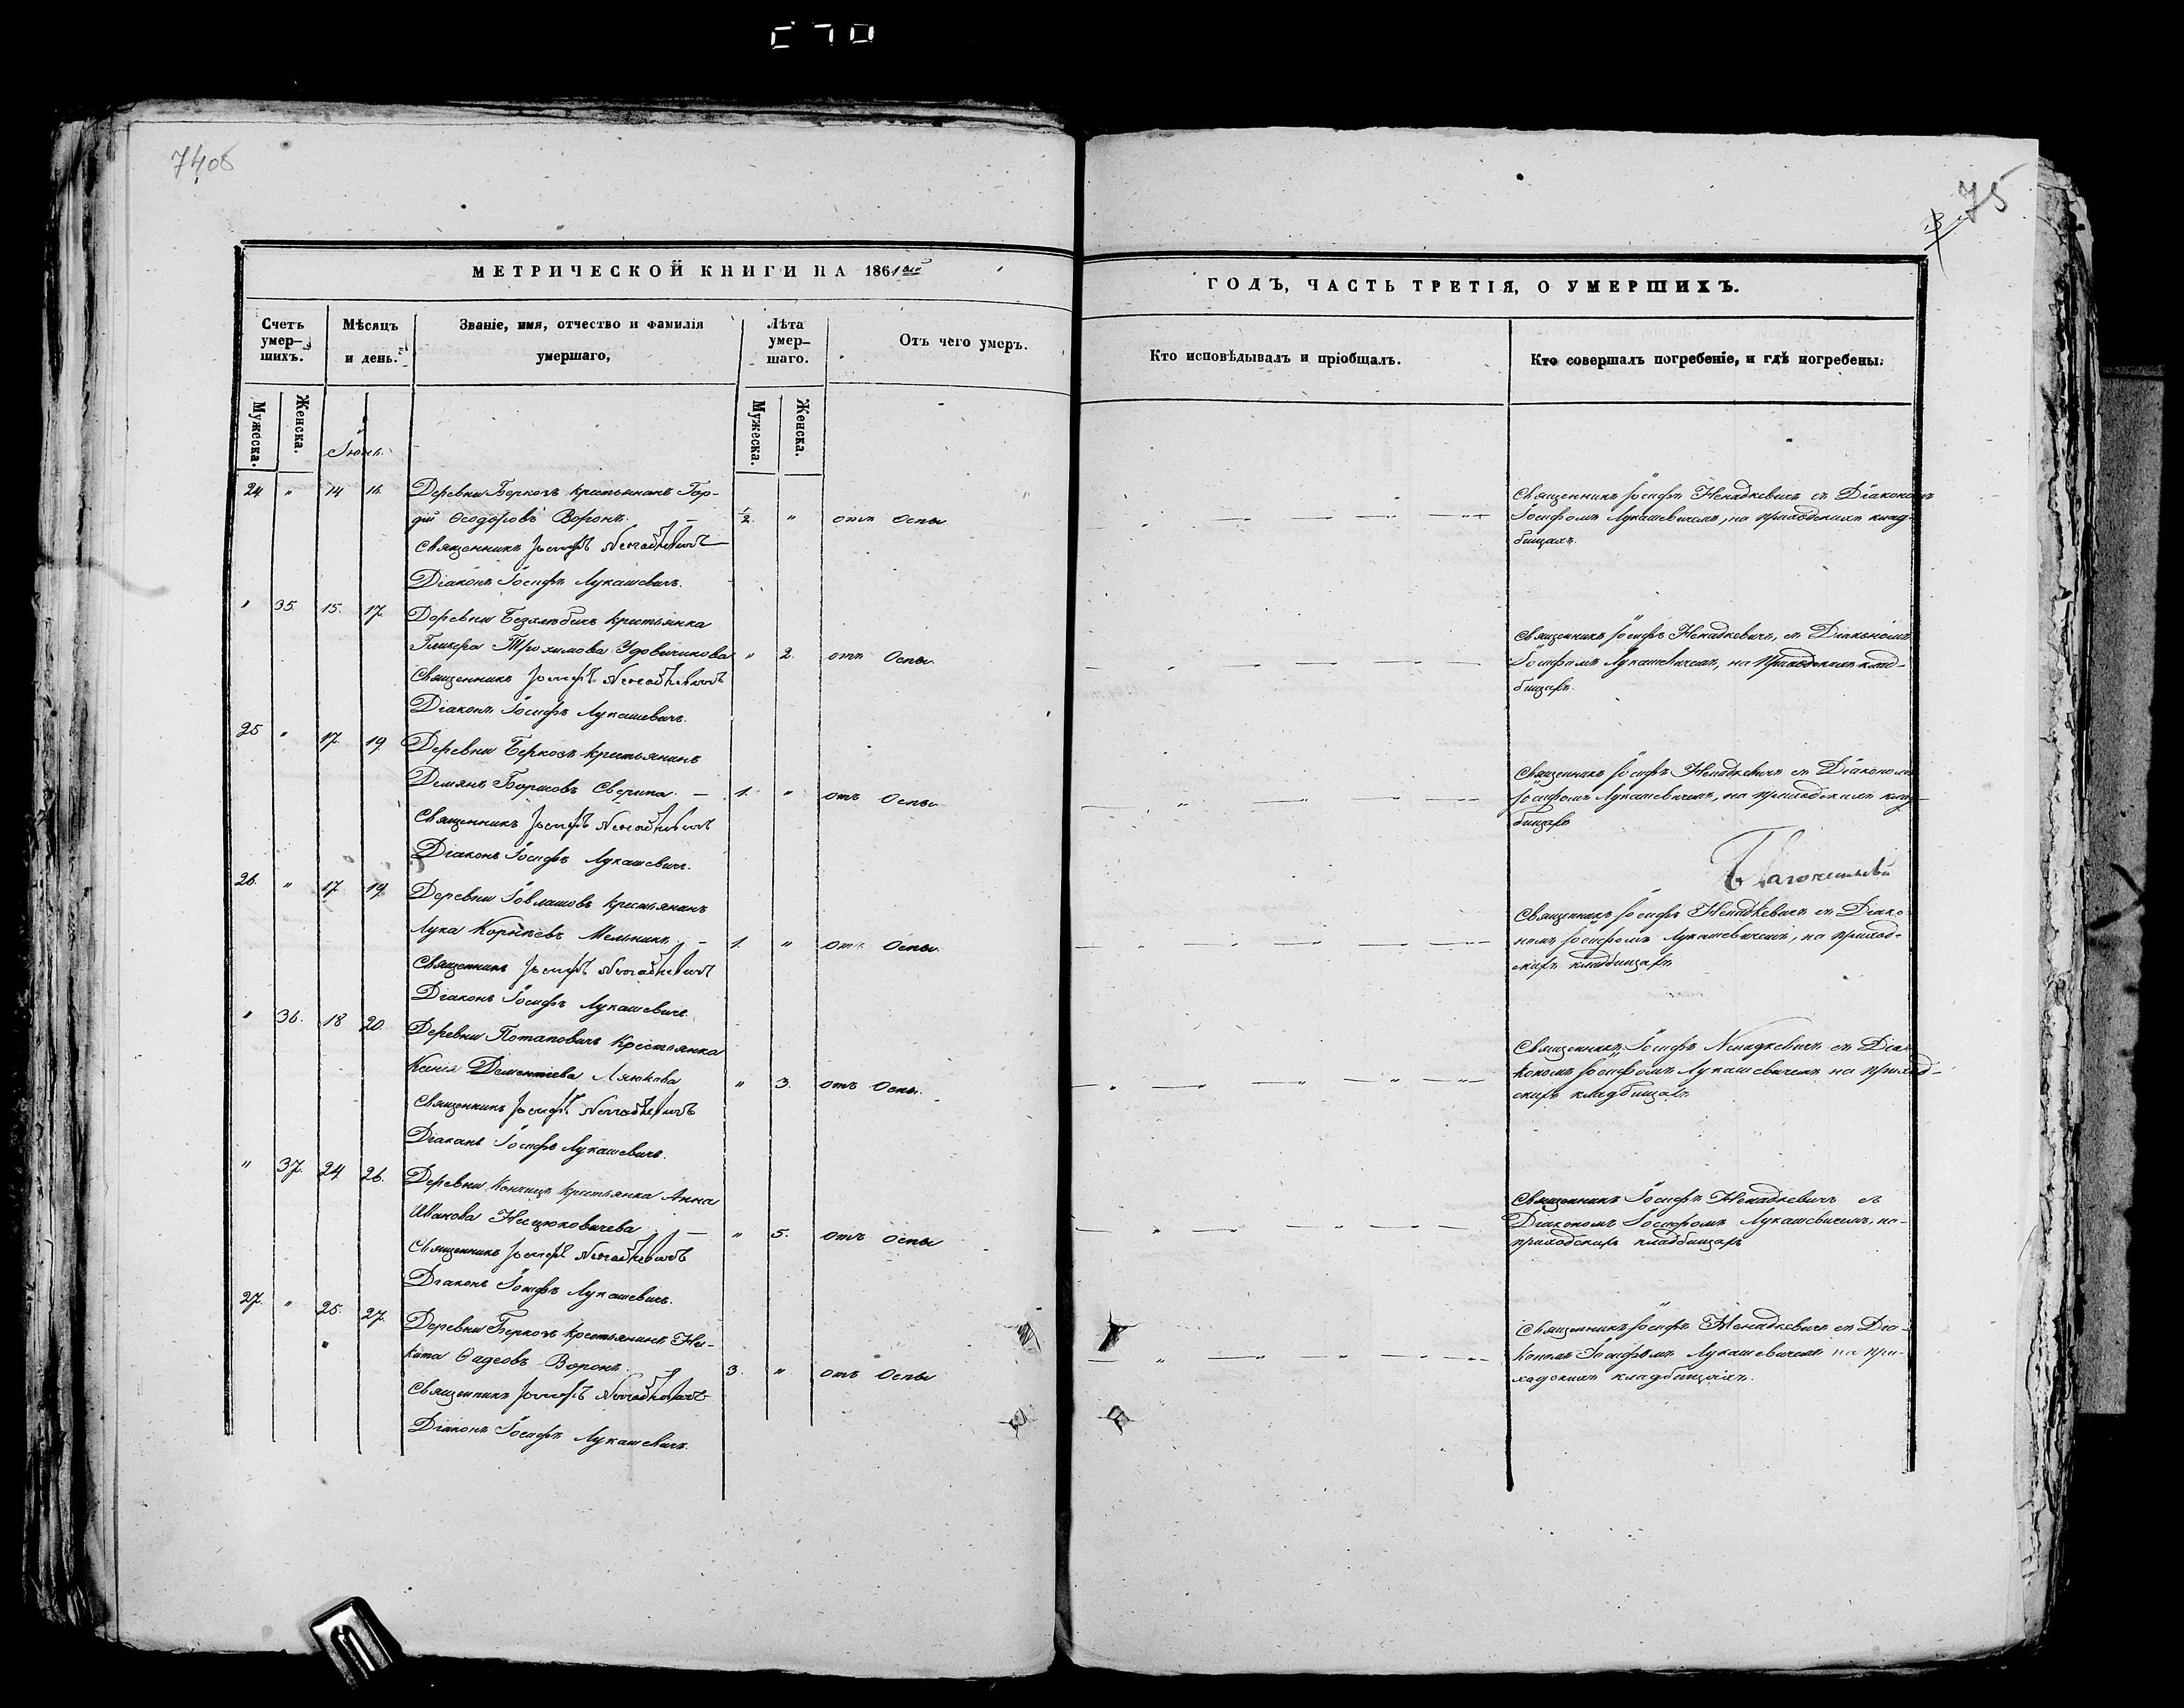 75
МЕТРИЧЕСКОЙ КНИГИ НА 1861
ГОДЪ, ЧАСТЬ ТРЕТІЯ, О УМЕРШИХЪ.
Счетъ умер-шихъ.
Мѣсяцъ и день.
Званіе, имя, отчество и фамилія умершаго,
Лѣта умер-шаго.
Отъ чего умеръ.
Кто исповѣдывалъ и пріобщалъ.
Кто совершалъ погребеніе, и гдѣ погребены.
Мужеска.
Женска.
Мужеска.
Женска.
24 " 14 16. Деревни Беркозъ крестьянинъ Гор-
дій Ѳеодоровъ Воронъ. 1/2. " отъ Оспы
Священникъ Іосифъ Ненадкевичъ
Діаконъ Іосифъ Лукашевичъ.
Священникъ Іосифъ Ненадкевичъ съ Діакономъ
Іосифомъ Лукашевичемъ, на приходскихъ клад-
бищахъ.
" 35. 15. 17. Деревни крестьянка
Гликера Трохимова " 2. отъ Оспы.
Священникъ Іосифъ Ненадкевичъ
Діаконъ Іосифъ Лукашевичъ.
Священникъ Іосифъ Ненадкевичъ, съ Діакономъ
Іосифомъ Лукашевичемъ, на приходскихъ клад-
бищахъ.
25 " 17. 19. Деревни Беркозъ крестьянинъ
Демянъ Борисовъ 1. " отъ Оспы
Священникъ Іосифъ Ненадкевичъ
Діаконъ Іосифъ Лукашевичъ.
Священникъ Іосифъ Ненадкевичъ съ Діакономъ
Іосифомъ Лукашевичемъ, на приходскихъ клад-
бищахъ
26. " 17. 19. Деревни крестьянинъ
Лука Корнѣевъ Мельникъ 1. " отъ Оспы.
Священникъ Іосифъ Ненадкевичъ
Діаконъ Іосифъ Лукашевичъ.
Священникъ Іосифъ Ненадкевичъ съ Діако-
номъ Іосифомъ Лукашевичемъ, на приход-
скихъ кладбищахъ
" 36. 18 20. Деревни Потаповичъ крестьянка
Ксенія Дементіева " 3. отъ Оспы.
Священникъ Іосифъ Ненадкевичъ
Діаконъ Іосифъ Лукашевичъ.
Священникъ Іосифъ Ненадкевичъ съ Діа-
кономъ Іосифомъ Лукашевичемъ на приход-
скихъ кладбищахъ
" 37. 24 26. Деревни крестьянка Анна
" 5. отъ Оспы
Священникъ Іосифъ Ненадкевичъ
Діаконъ Іосифъ Лукашевичъ.
Священникъ Іосифъ Ненадкевичъ съ
Діакономъ Іосифомъ Лукашевичемъ, на
приходскихъ кладбищахъ
27. " 25. 27. Деревни Беркозъ крестьянинъ Ни-
кита Воронъ. 3. " отъ Оспы
Священникъ Іосифъ Ненадкевичъ
Діаконъ Іосифъ Лукашевичъ.
Священникъ Іосифъ Ненадкевичъ съ Діа-
кономъ Іосифомъ Лукашевичемъ на при-
ходскихъ кладбищахъ.